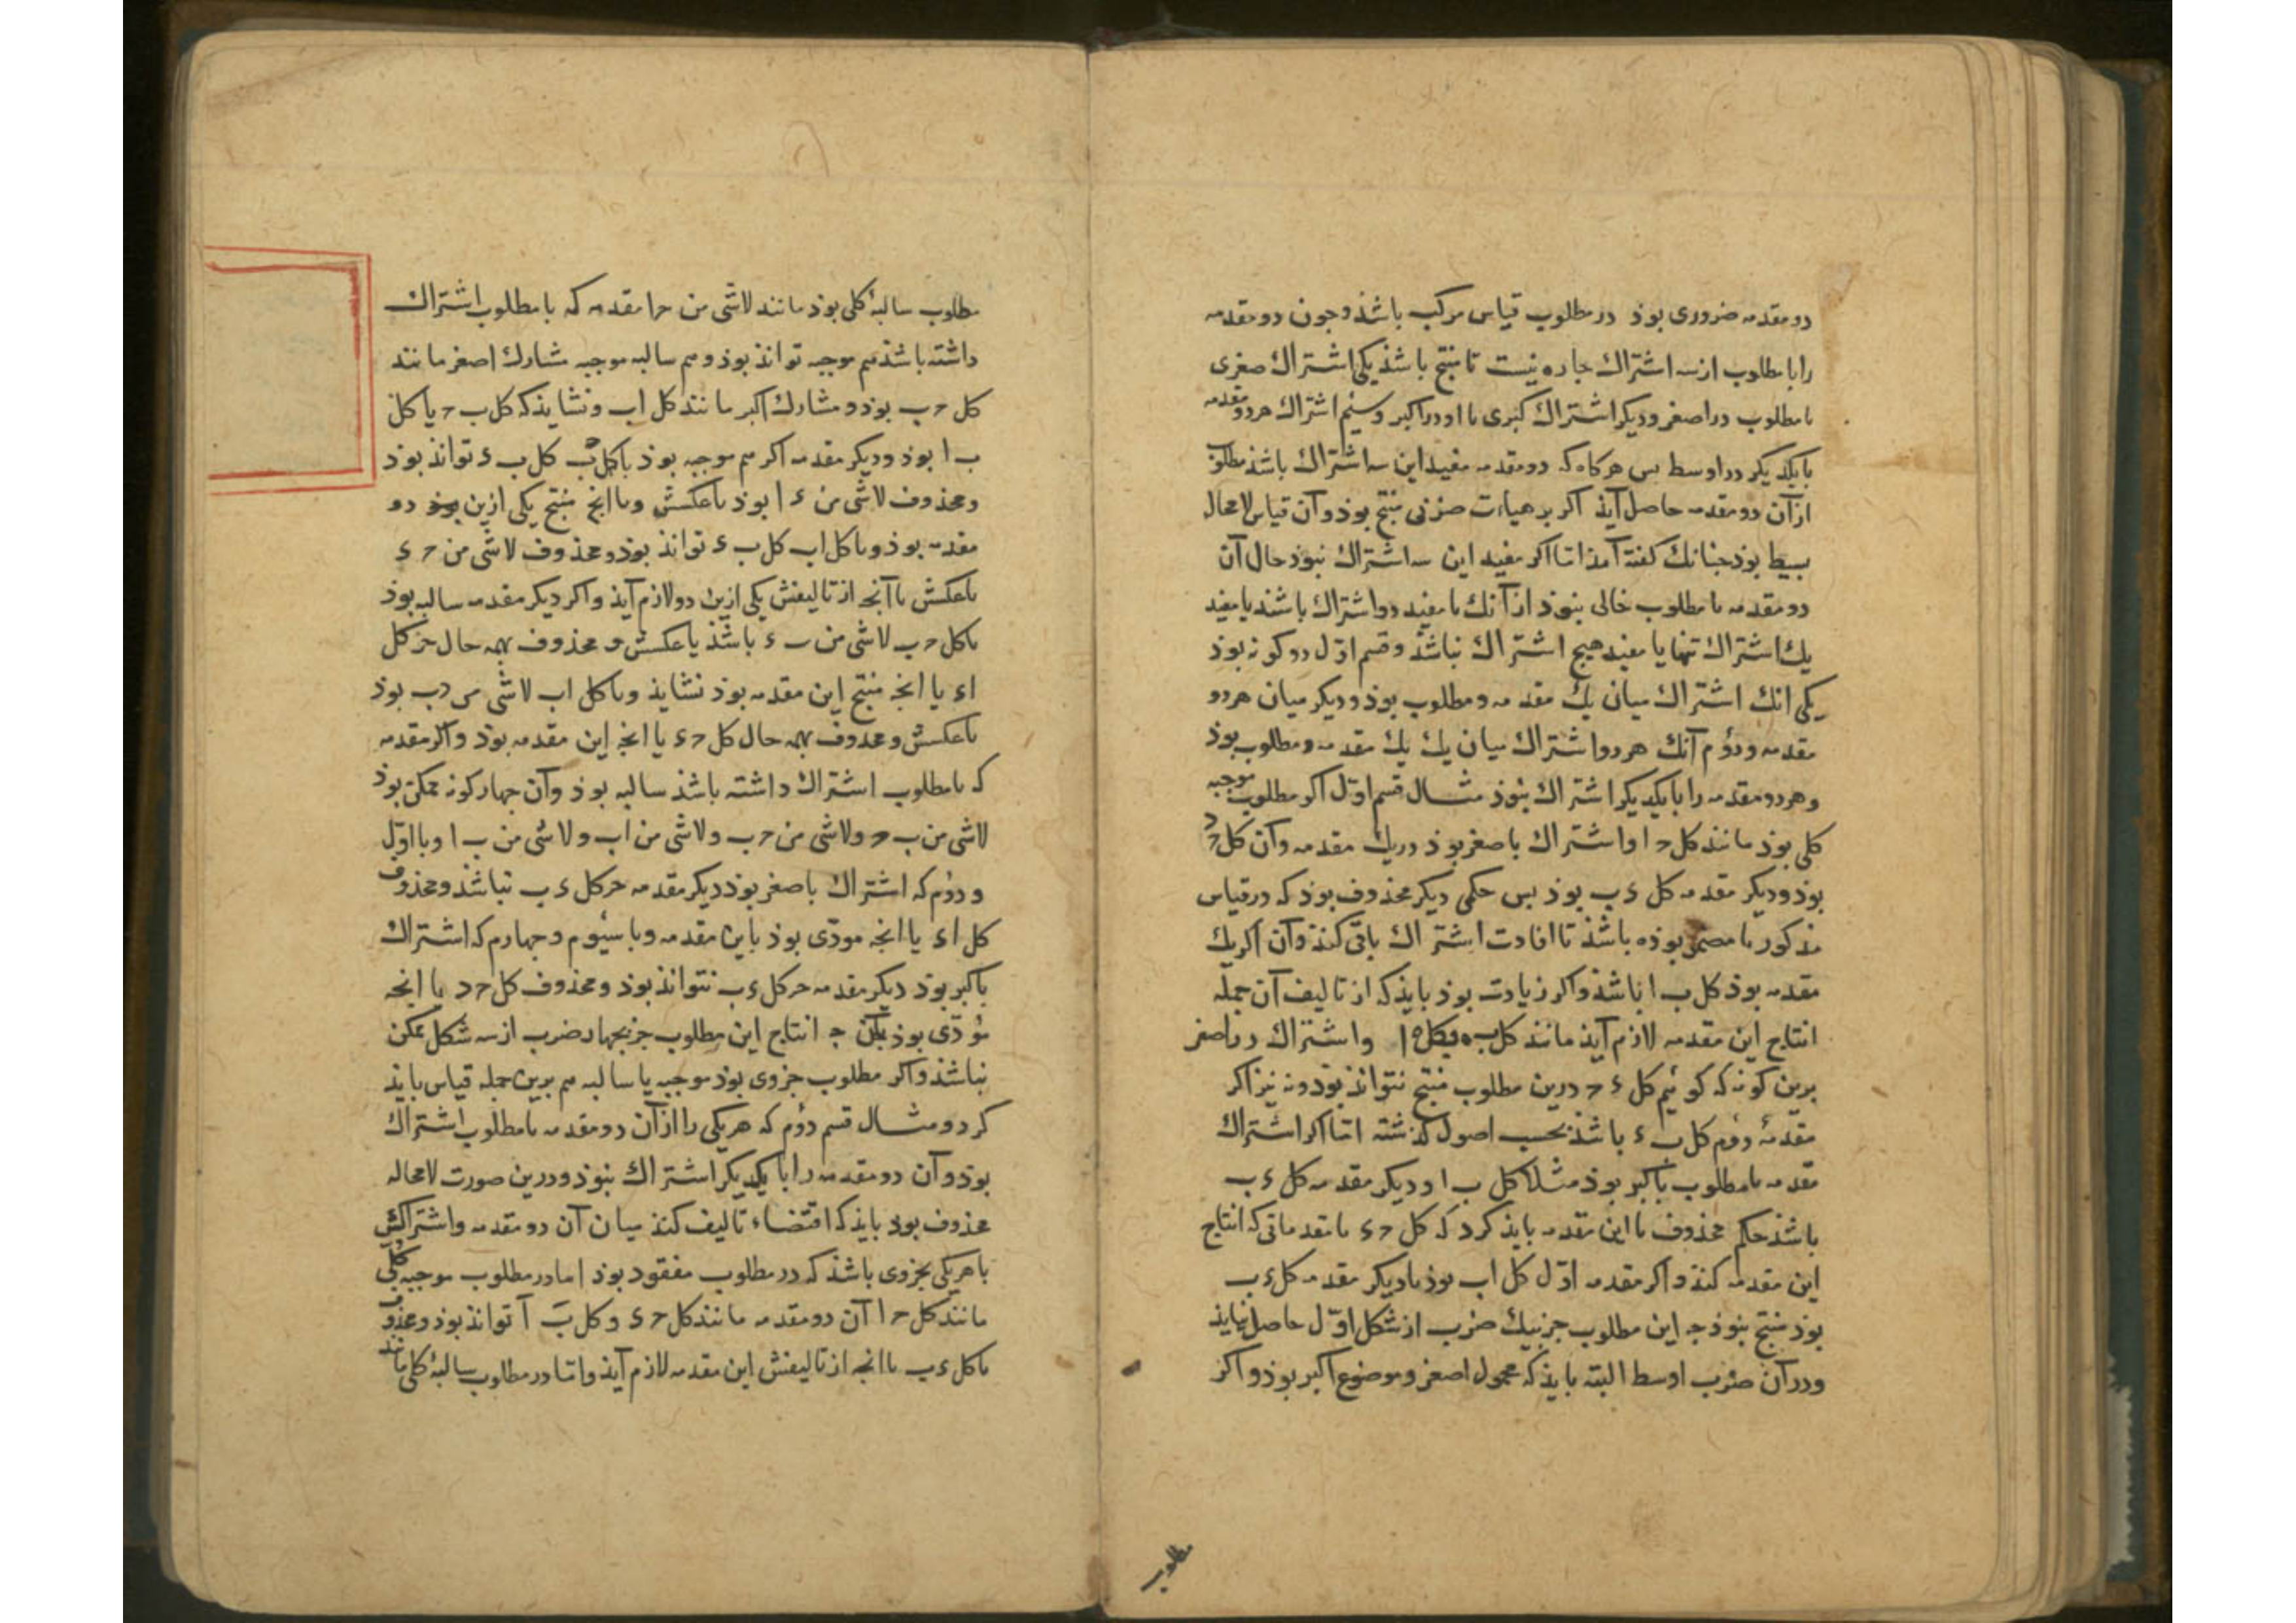 دو مقدمه ضروری بوذ در مطلوب قیاس مرکب باشذ و جون دو مقدمه
را با مطلوب از سه اشتراك جاره نیست تا منتج باشذ یکی اشتراك صغری
با مطلوب در اصغر و دیکر اشتراك کبری با او در اکبر و سیم اشتراك هر دو مقدمه
با یکدیکر در اوسط بس هرکاه که دو مقدمه مفید این سه اشتراك باشذ مطلوب
از آن دو مقدمه حاصل آیذ اکر بر هیات ضربی منتج بوذ و آن قیاس لامحاله
بسیط بوذ جنانك کفته آمذ اما اکر مفید این سه اشتراك نبوذ حال آن
دو مقدمه با مطلوب خالی نبوذ از آنك یا مفید دو اشتراك باشند یا مفید
یك اشتراك تنها یا مفید هیج اشتراك نباشذ و قسم اوّل دو کونه بوذ
یکی انك اشتراك میان یك مقدمه و مطلوب بوذ و دیکر میان هر دو
مقدمه و دوُم آنك هر دو اشتراك میان یك یك مقدمه و مطلوب بوذ
و هر دو مقدمه را با یکدیکر اشتراك نبوذ مثال قسم اوّل اکر مطلوب موجبه
کلی بوذ مانند کل ح ا و اشتراك باصغر بوذ در یك مقدمه و آن کل ح د
بوذ و دیکر مقدمه کل ء ب بوذ بس حکمی دیکر محذوف بوذ که در قیاس
مذکور یا مضمر بوذه باشذ تا افادت اشتراك باقی کند و آن اکر یك
مقدمه بوذ کل ب ا باشذ و اکر زیادت بوذ بایذ که از تالیف آن جمله
انتاج این مقدمه لازم آیذ مانند کل ب ه و کل ه ا و اشتراك در اصغر
برین کونه که کوئیم کل ء ح درین مطلوب منتج نتوانذ بوذ و نه نیز اکر
مقدمهٔ دوُم کل ب ء باشذ بحسب اصول کذشته اما اکر اشتراك
مقدمه با مطلوب باکبر بوذ مثلا کل ب ا و دیکر مقدمه کل ء ب
باشذ حکم محذوف با این مقدمه بایذ کرد که کل ح ء یا مقدماتی که انتاج
این مقدمه کند و اکر مقدمه اوّل کل اب بوذ با دیکر مقدمه کل ء ب
بوذ منتج نبوذ جه این مطلوب جز بیك ضرب از شکل اوّل حاصل نیایذ
و در آن ضرب اوسط البته بایذ که محمول اصغر و موضوع اکبر بوذ و اکر
مطلوب
مطلوب سالبهٔ کلی بوذ مانند لاشی من ح ا مقدمه که با مطلوب اشتراك
داشته باشذ هم موجبه توانذ بوذ و هم سالبه موجبه مشارك اصغر مانند
کل ح ب بوذ و مشارك اکبر مانند کل اب و نشایذ که کل ب ح یا کل
ب ا بوذ و دیکر مقدمه اکر هم موجبه بوذ با کل ح ب کل ب ء توانذ بوذ
و محذوف لاشی من ء ا بوذ یا عکسش و یا انج منتج یکی ازین دو
مقدمه بوذ و با کل اب کل ب ء توانذ بوذ و محذوف لاشی من ح ء
یا عکسش یا آنجه از تالیفش یکی ازین دو لازم آیذ و اکر دیکر مقدمه سالبه بوذ
با کل ح ب لاشی من ب ء باشذ یا عکسش و محذوف بهمه حال جز کل
اء یا انجه منتج این مقدمه بوذ نشایذ و با کل اب لاشی من ء ب بوذ
یا عکسش و محذوف بهمه حال کل ح ء یا انجه این مقدمه بوذ و اکر مقدمه
که با مطلوب اشتراك داشته باشذ سالبه بوذ و آن جهار کونه ممکن بوذ
لاشی من ب ح و لاشی من ح ب و لاشی من اب و لاشی من ب ا و با اوّل
و دوُم که اشتراك باصغر بوذ دیکر مقدمه جز کل ء ب نباشذ و محذوف
کل اء یا انجه مودّی بوذ باین مقدمه و با سیُوم و جهارم که اشتراك
باکبر بوذ دیکر مقدمه جز کل ء ب نتوانذ بوذ و محذوف کل ح د یا انجه
مُودّی بوذ بآن جه انتاج این مطلوب جز بجهار ضرب از سه شکل ممکن
نباشذ و اکر مطلوب جزوی بوذ موجبه یا سالبه هم برین جمله قیاس بایذ
کرد و مثال قسم دوُم که هر یکی را از آن دو مقدمه با مطلوب اشتراك
بوذ و آن دو مقدمه را با یکدیکر اشتراك نبوذ و درین صورت لامحاله
محذوف بوذ بایذ که اقتضاء تالیف کند میان آن دو مقدمه و اشتراکش
با هر یکی بجزوی باشذ که در مطلوب مفقود بوذ اما در مطلوب موجبه کلی
مانند کل ح ا آن دو مقدمه مانند کل ح ء و کل ب آ توانذ بوذ و محذوف
یا کل ء ب یا انجه از تالیفش این مقدمه لازم آیذ و اما در مطلوب سالبهٔ کلی مانند